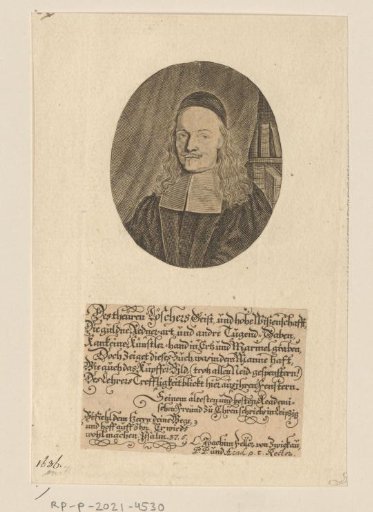 Des theuren Löschers Geist, und hohe Wissenschafft,
Die güldne Redner-art, und andre Tugend-Gaben
Kan keine Künstler-hand in Ertz und Marmel graben.
Doch zeiget dieses Buch, was in dem Manne hafft,
Wie auch das Kupffer-Bild, trotz allen Neid-gespenstern!
Des Lehrers Trefflichkeit blickt hier aus Ehren-fenstern.
Seinem ältesten und besten Academi-
schen Freund zu Ehren schrieb es in Leipzig
Befiehl dem Herrn deine Wege,
und hoff auff Ihn, Er wirds
wohl machen. Psalm. 37. 5.
L. Joachim Feller, von Zwickau,
P. P. und Acad. p. t. Rector.
1636.
RP-P-2021-4530